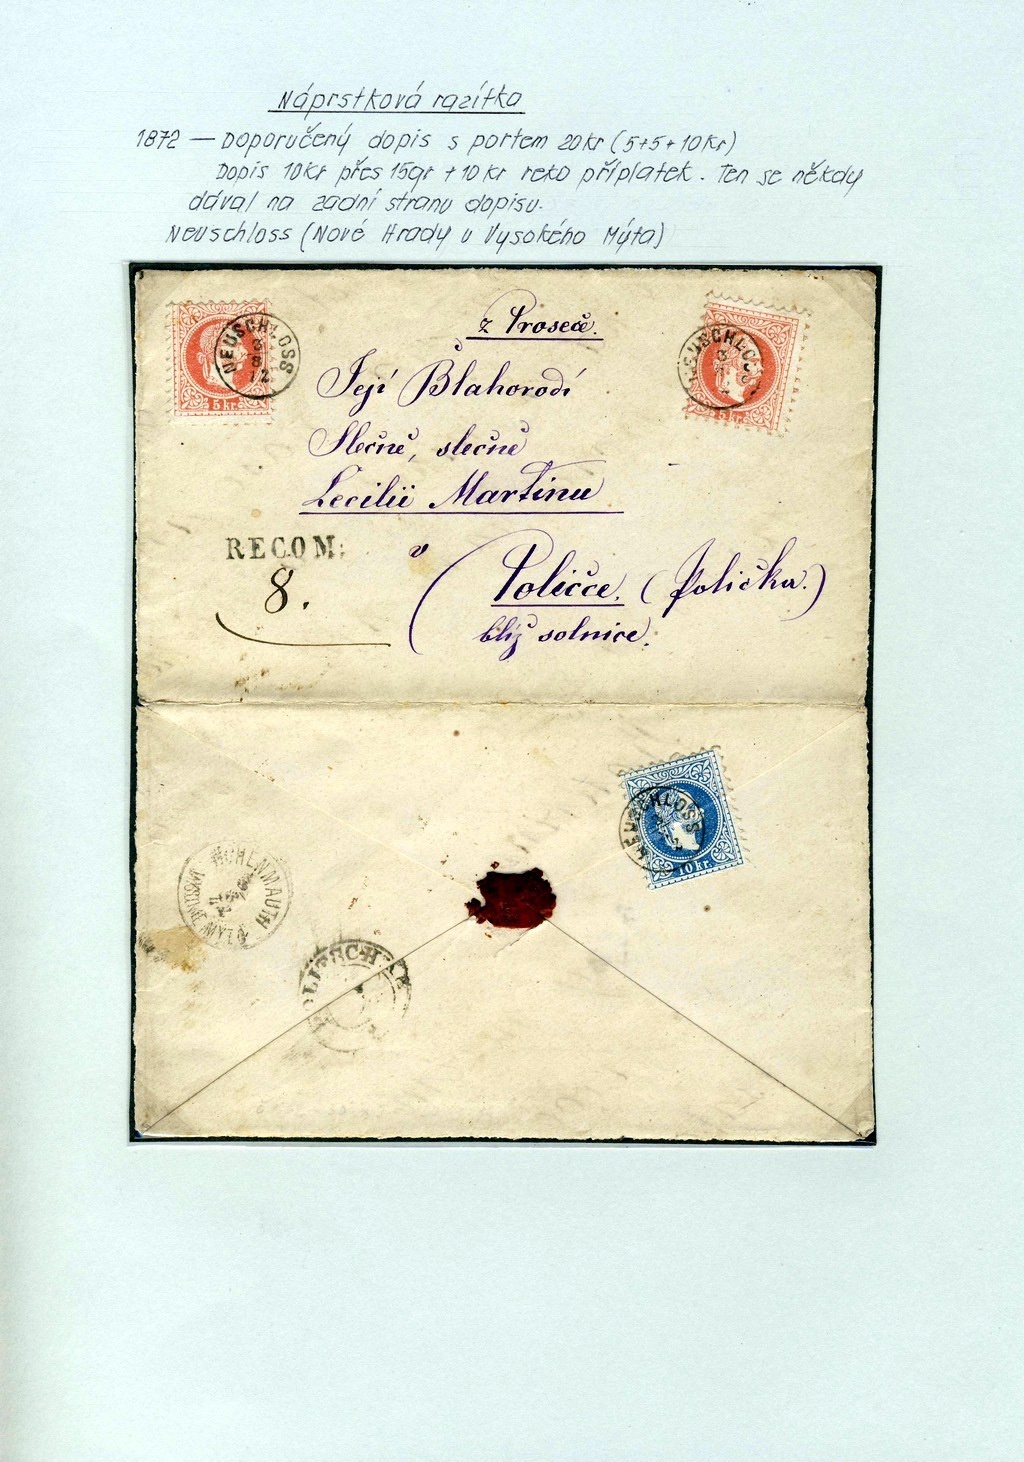 Náprstková razítka
1872 — Doporučený dopis s portem 20kr (5+5+10kr)
Dopis 10kr přes 15gr + 10kr reko příplatek. Ten se někdy
dával na zadní stranu dopisu.
Neuschloss (Nové Hrady u Vysokého Mýta)
z Proseče.
NEUSCHLOSS
3
8
72
5 kr.
NEUSCHLOSS
5 kr.
Její Blahorodí
Slečně, slečně
Cecilii Martinu
RECOM:
8.
v Poličce. (Polička.)
blíž solnice.
NEUSCHLOSS
10 kr.
HOHENMAUTH
MÝTO
POLITSCHKA